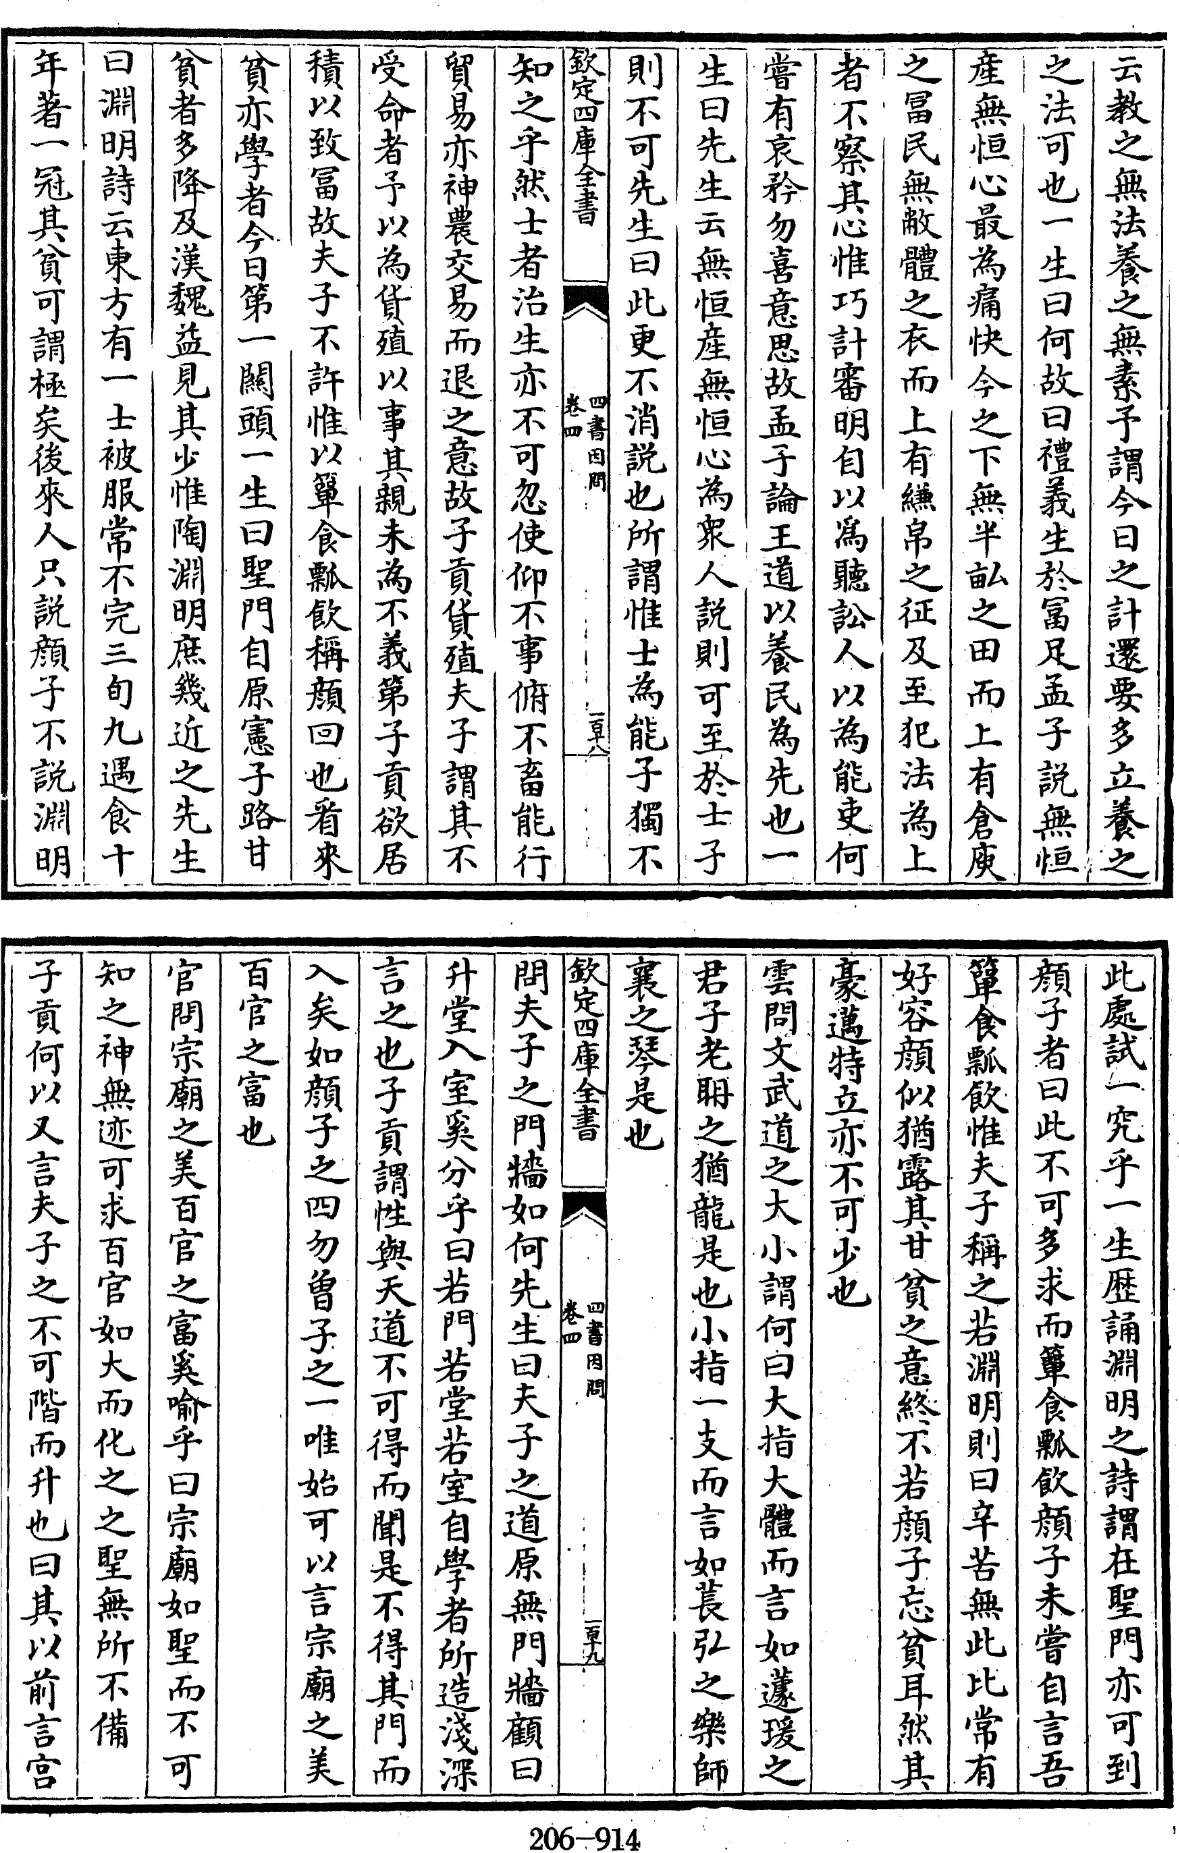 云教之無法養之無素予謂今日之計還要多立養之
之法可也一生曰何故曰禮義生於冨足孟子説無恒
産無恒心最為痛快今之下無半畝之田而上有倉庾
之冨民無敝體之衣而上有縑帛之征及至犯法為上
者不察其心惟巧計審明自以爲聽訟人以為能吏何
嘗有哀矜勿喜意思故孟子論王道以養民為先也一
生曰先生云無恒産無恒心為衆人説則可至於士子
則不可先生曰此更不消説也所謂惟士為能子獨不
欽定四庫全書
四書因問
卷四
一百十八
知之乎然士者治生亦不可忽使仰不事俯不畜能行
貿易亦神農交易而退之意故子貢貨殖夫子謂其不
受命者予以為貨殖以事其親未為不義第子貢欲居
積以致冨故夫子不許惟以簞食瓢飲稱顔回也看來
貧亦學者今日第一關頭一生曰聖門自原憲子路甘
貧者多降及漢魏益見其少惟陶淵明庶幾近之先生
曰淵明詩云東方有一士被服常不完三旬九遇食十
年著一冠其貧可謂極矣後來人只説顔子不説淵明
此處試一究乎一生歴誦淵明之詩謂在聖門亦可到
顔子者曰此不可多求而簞食瓢飲顔子未嘗自言吾
簞食瓢飲惟夫子稱之若淵明則曰辛苦無此比常有
好容顔似猶露其甘貧之意終不若顔子忘貧耳然其
豪邁特立亦不可少也
雲問文武道之大小謂何曰大指大體而言如蘧瑗之
君子老聃之猶龍是也小指一支而言如萇弘之樂師
襄之琴是也
欽定四庫全書
四書因問
卷四
一百十九
問夫子之門牆如何先生曰夫子之道原無門牆顧曰
升堂入室奚分乎曰若門若堂若室自學者所造淺深
言之也子貢謂性與天道不可得而聞是不得其門而
入矣如顔子之四勿曽子之一唯始可以言宗廟之美
百官之富也
官問宗廟之美百官之富奚喻乎曰宗廟如聖而不可
知之神無迹可求百官如大而化之之聖無所不備
子貢何以又言夫子之不可階而升也曰其以前言宫
206-914